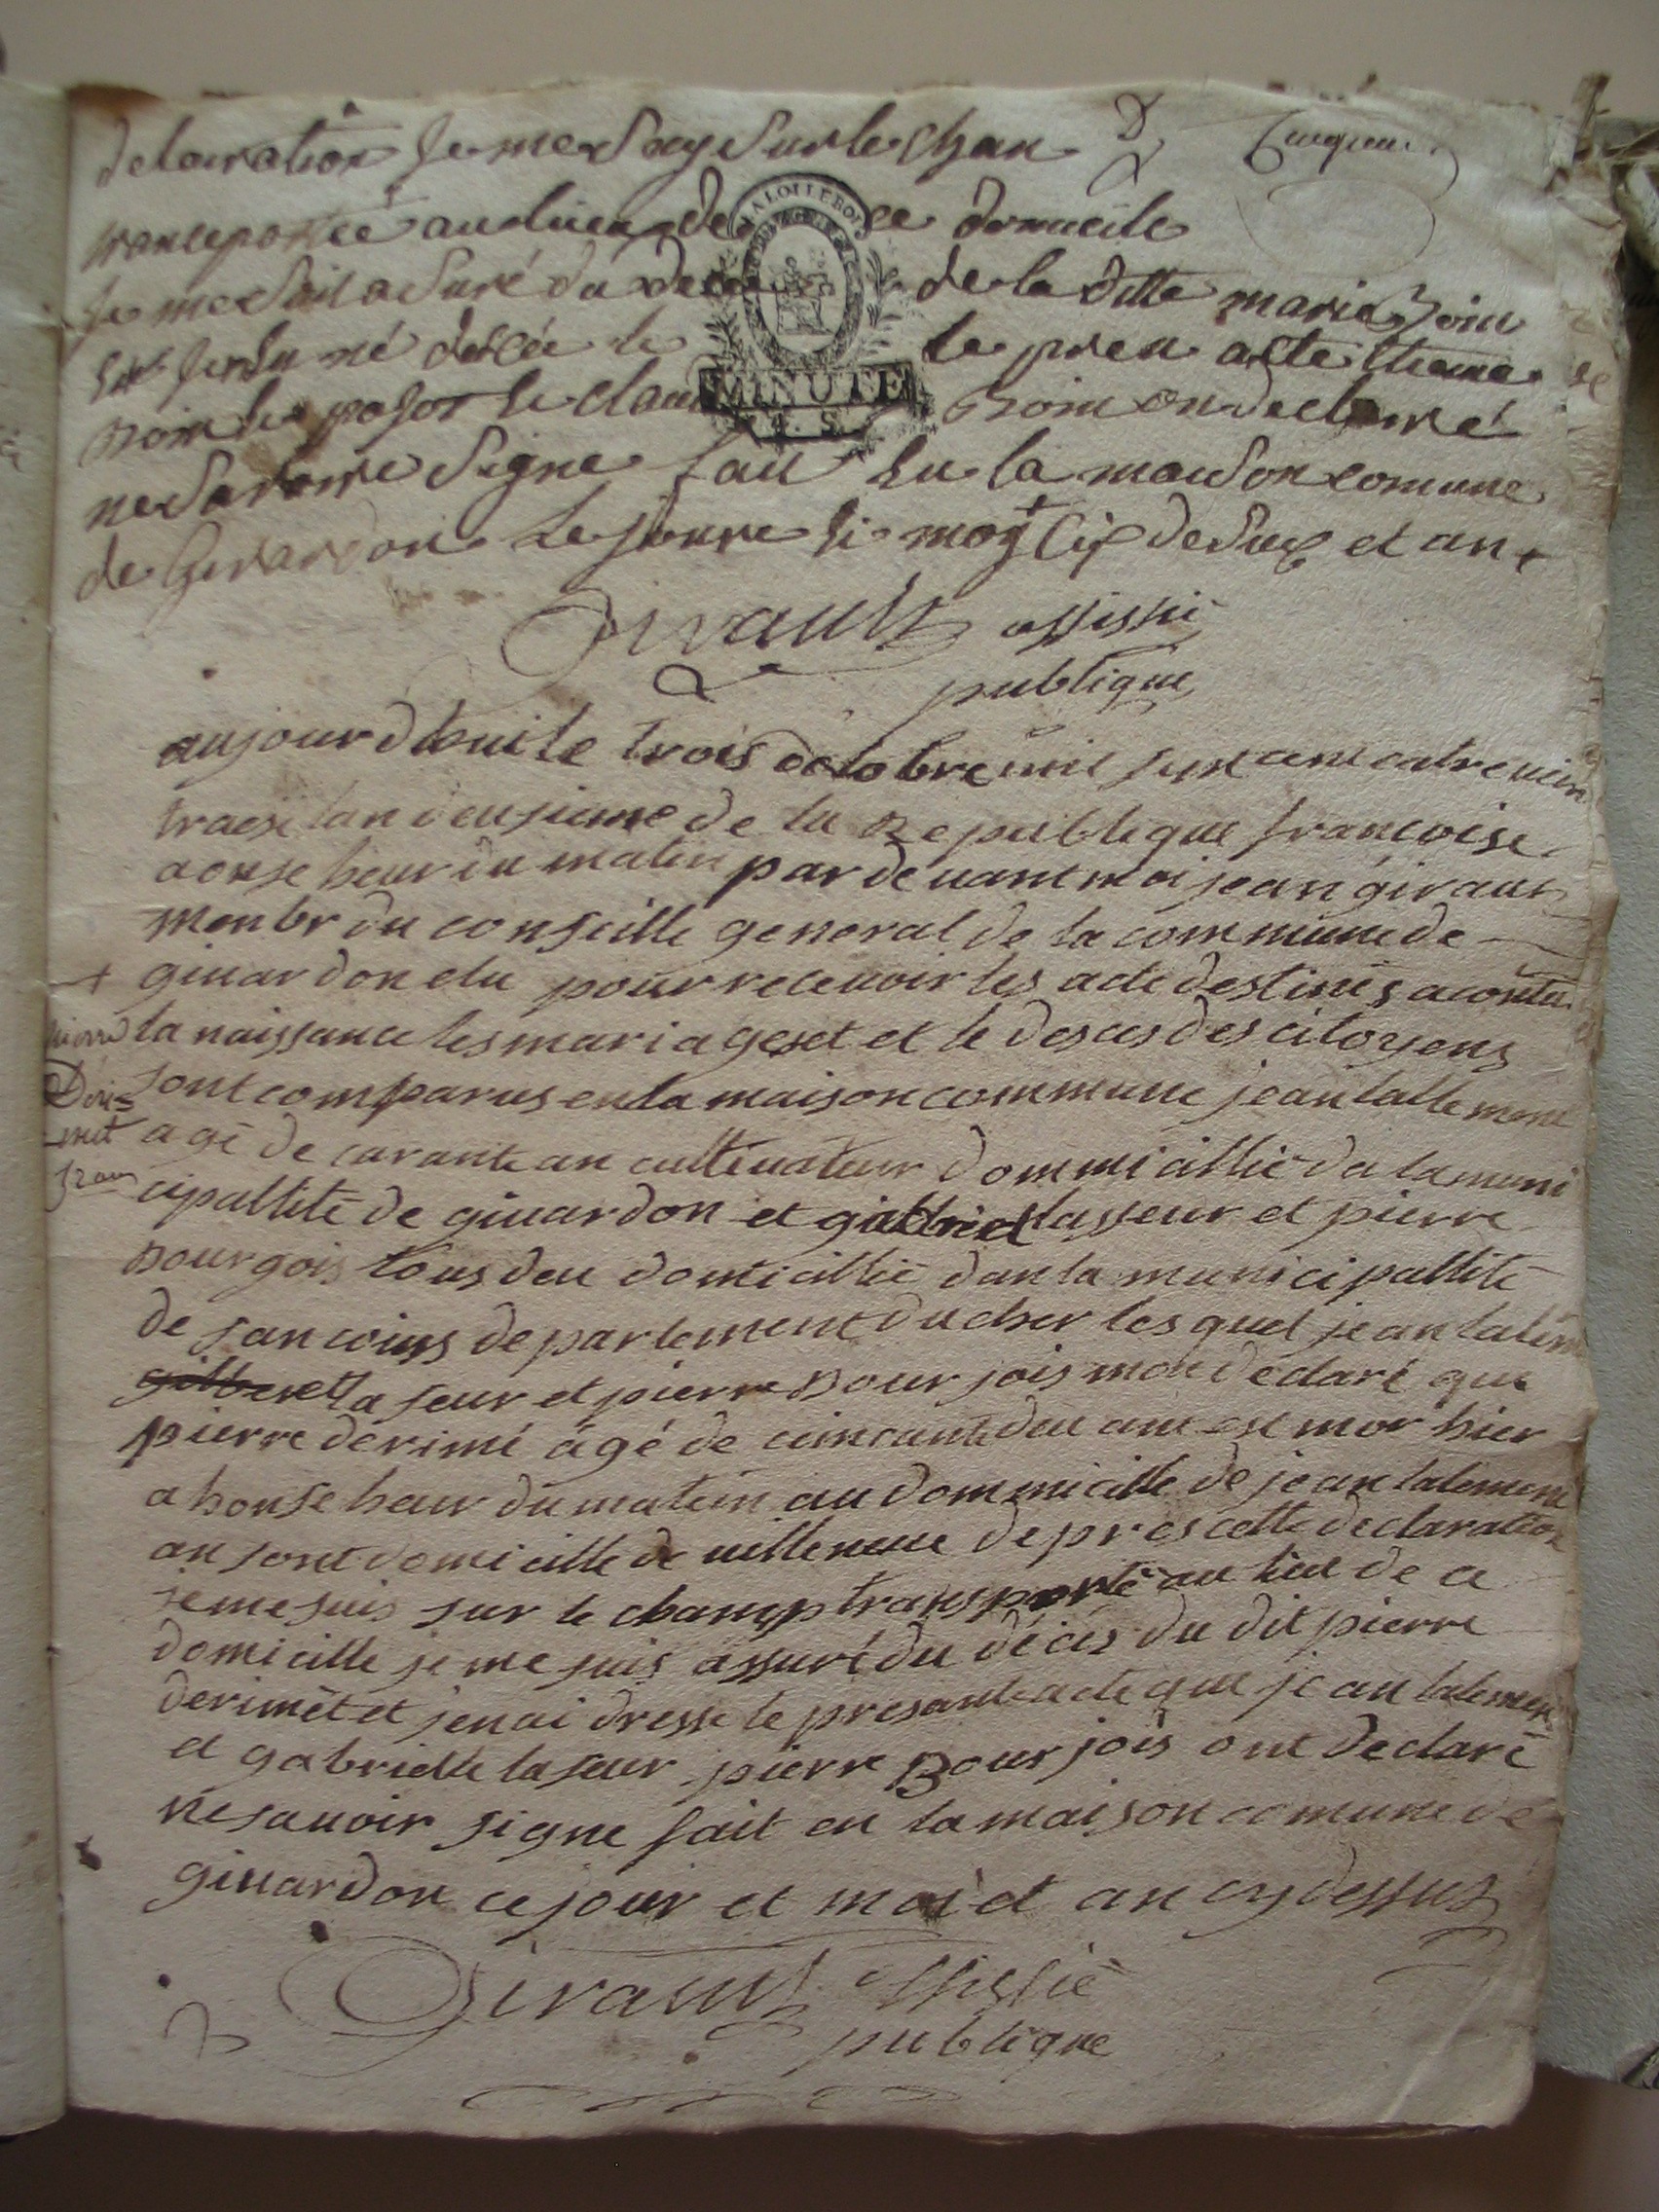 delaration je me suy sur le chan
transeportée au lieu de ce domicile
LA LOI LE ROI
je me suis asuré du dece de la ditte marie Boin
le pren acte
MINUTE
4. S.
Boin on declaré
ne savoire signe fait en la maison comune
de Givardon le joure et an +
Girault offissié
publique
aujourdhuit le trois octobre mil sept cent catre vin
traese lan deusieme de la Republique francoise
a onse heur du matin par devant moi jean giraut
menbr du conseille general de la commune de
+ givardon elu pour recevoir les acte destinés a conster
pierre
la naissance les mariages et et le deces des citoyens
Deri=
sont comparus en la maison commune jean lallement
met
agé de carante an cultivateur dommicillié da la muni
52 ans
cipallité de givardon et gabriel lasseur et pierre
Bourgois tous deu domicillié dan la municipallité
de sancoins departement du cher les quel jean lalem
laseur et pierre Bourjois mon déclaré que
pierre derimé agé de cincante deu ans est mor hier
a honse heur du matin au dommicille de jean lalement
an sont domicille de villeneuve de pres cette declaration
je me suis sur le champ transporté au lieu de ce
domicille je me suis assuré du décés du dit pierre
derimet et jen ai dresse le presant acte que jean lalement
et gabrielle laseur pierre Bourjois ont declaré
ne savoir signe fait en la maison comune de
givardon ce jour et moi et an cy dessus
Girault offissié
publique